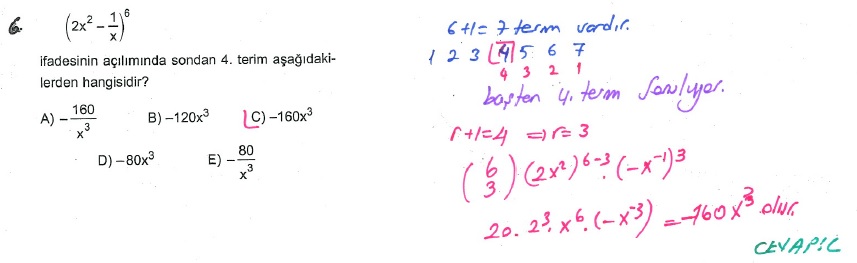 6.
(2x² − 1/x)⁶
ifadesinin açılımında sondan 4. terim aşağıdaki-
lerden hangisidir?
A) −160/x³ B) −120x³ C) −160x³
D) −80x³ E) −80/x³
6+1= 7 terim vardır.
1 2 3 4 5 6 7
4 3 2 1
baştan 4. terim soruluyor.
r+1=4 ⇒ r= 3
(6 3) (2x²)⁶⁻³ . (−x⁻¹)³
20. 2³. x⁶. (−x⁻³) = −160x³ olur.
CEVAP: C